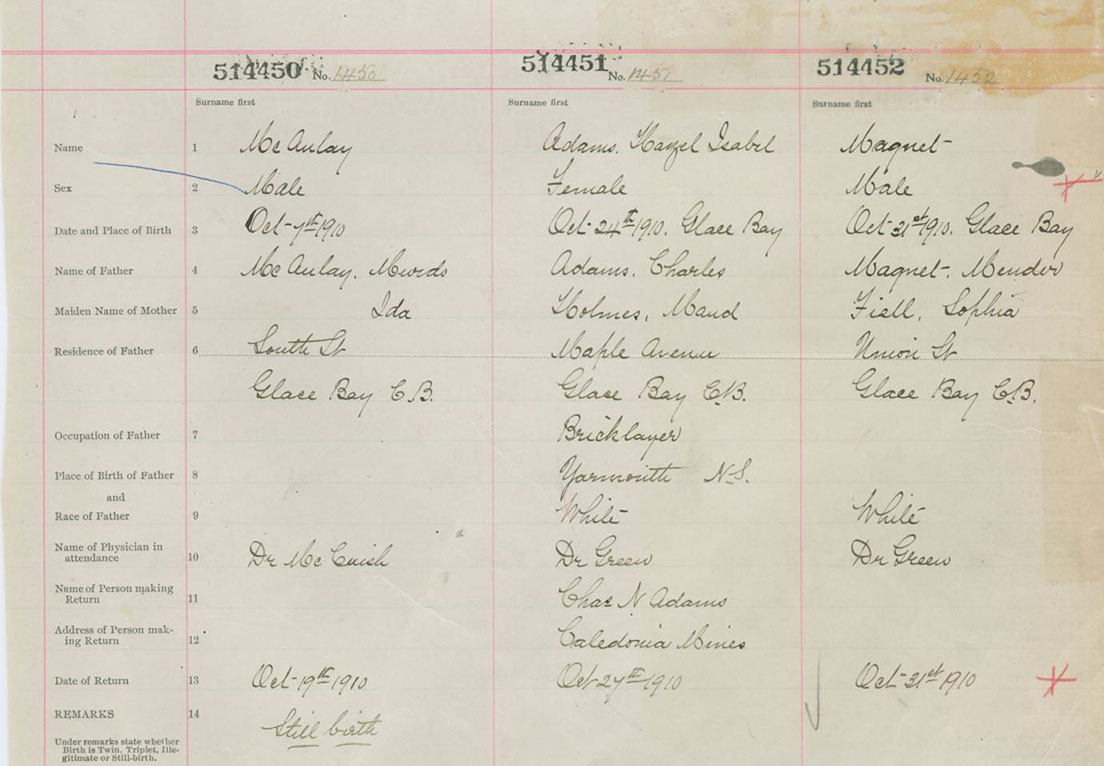 514450 No. 1450 514451 No. 1451 514452 No. 1452
Surname first Surname first Surname first
Name 1 McAulay Adams. Hazel Isabel Magnet
Sex 2 Male Female Male
Date and Place of Birth 3 Oct-7th 1910 Oct-24th 1910. Glace Bay Oct-31st 1910. Glace Bay
Name of Father 4 McAulay, Murdo Adams. Charles Magnet,
Maiden Name of Mother 5 Ida Holmes, Maud Sophia
Residence of Father 6 South St Maple Avenue Union St
Glace Bay C.B. Glace Bay C.B. Glace Bay C.B.
Occupation of Father 7 Bricklayer
Place of Birth of Father 8 Yarmouth N.S.
and
Race of Father 9 White White
Name of Physician in
attendance 10 Dr McCuish Dr Green Dr Green
Name of Person making
Return 11 Chas N Adams
Address of Person mak-
ing Return 12 Caledonia Mines
Date of Return 13 Oct-19th 1910 Oct 27th 1910 Oct-31st 1910
REMARKS 14 Still birth
Under remarks state whether
Birth is Twin, Triplet, Ille-
gitimate or Still-birth.